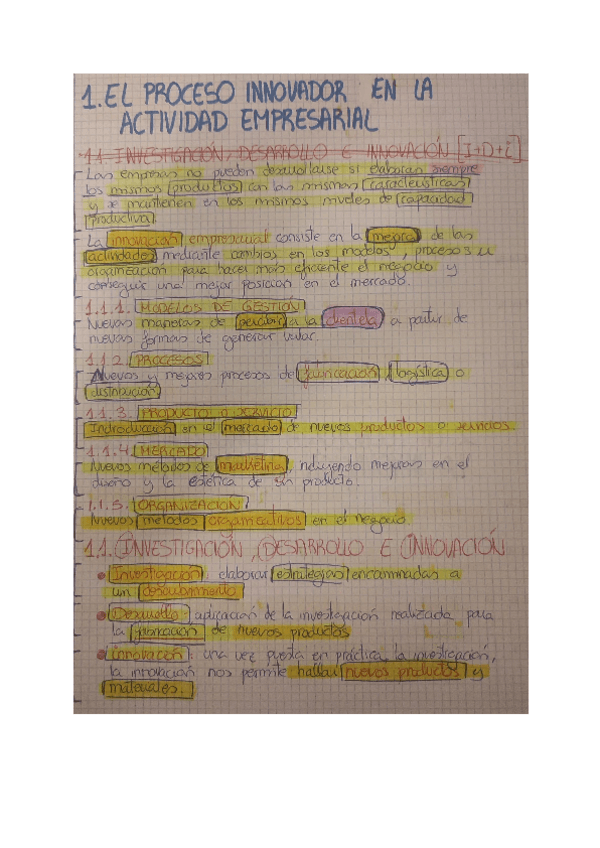 1. EL PROCESO INNOVADOR EN LA
ACTIVIDAD EMPRESARIAL
1.1. INVESTIGACIÓN, DESARROLLO E INNOVACIÓN [I+D+i]
Las empresas no pueden desarrollarse si elaboran siempre
los mismos productos con las mismas características
y se mantienen en los mismos niveles de capacidad
productiva.
La innovación empresarial consiste en la mejora de las
actividades mediante cambios en los modelos, procesos u
organización para hacer más eficiente el negocio y
conseguir una mejor posición en el mercado.
1.1.1. MODELOS DE GESTIÓN
Nuevas maneras de percibir a la clientela a partir de
nuevas formas de generar valor.
1.1.2. PROCESOS
Nuevos y mejores procesos de fabricación, logística o
distribución
1.1.3. PRODUCTO O SERVICIO
Introducción en el mercado de nuevos productos o servicios.
1.1.4. MERCADO
Nuevos métodos de marketing, incluyendo mejoras en el
diseño y la estética de un producto.
1.1.5. ORGANIZACIÓN
Nuevos métodos organizativos en el negocio
1.1. INVESTIGACIÓN, DESARROLLO E INNOVACIÓN
Investigación: elaborar estrategias encaminadas a
un descubrimiento
Desarrollo: aplicación de la investigación realizada para
la fabricación de nuevos productos
innovación: una vez puesta en práctica la investigación,
la innovación nos permite hallar nuevos productos y
materiales.